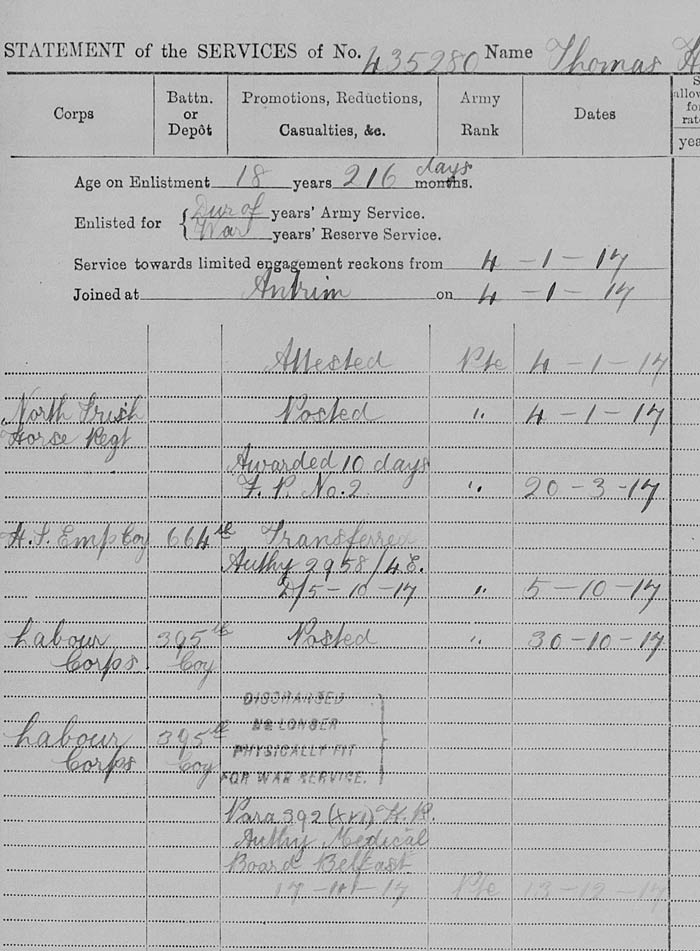 STATEMENT of the SERVICES of No. 435280 Name Thomas H
Corps
Battn. or Depôt
Promotions, Reductions, Casualties, &c.
Army Rank
Dates
S
allow
fo
rat
yea
Age on Enlistment 18 years 216 days months.
Enlisted for { Dur of years' Army Service.
War years' Reserve Service.
Service towards limited engagement reckons from 4 - 1 - 17
Joined at Antrim on 4 - 1 - 17
Attested Pte 4 - 1 - 17
North Irish Posted " 4 - 1 - 17
Horse Regt
Awarded 10 days
F. P. No. 2 " 20 - 3 - 17
H. S. Emp Coy 664th Transferred
Authy 2958/4E.
D/5 - 10 - 17 " 5 - 10 - 17
Labour 395th Posted " 30 - 10 - 17
Corps Coy
DISCHARGED
Labour 395th NO LONGER
Corps Coy PHYSICALLY FIT
FOR WAR SERVICE.
Para 392 (xvi) K. R.
Authy Medical
Board Belfast
17 - 11 - 17 Pte 13 - 12 - 17